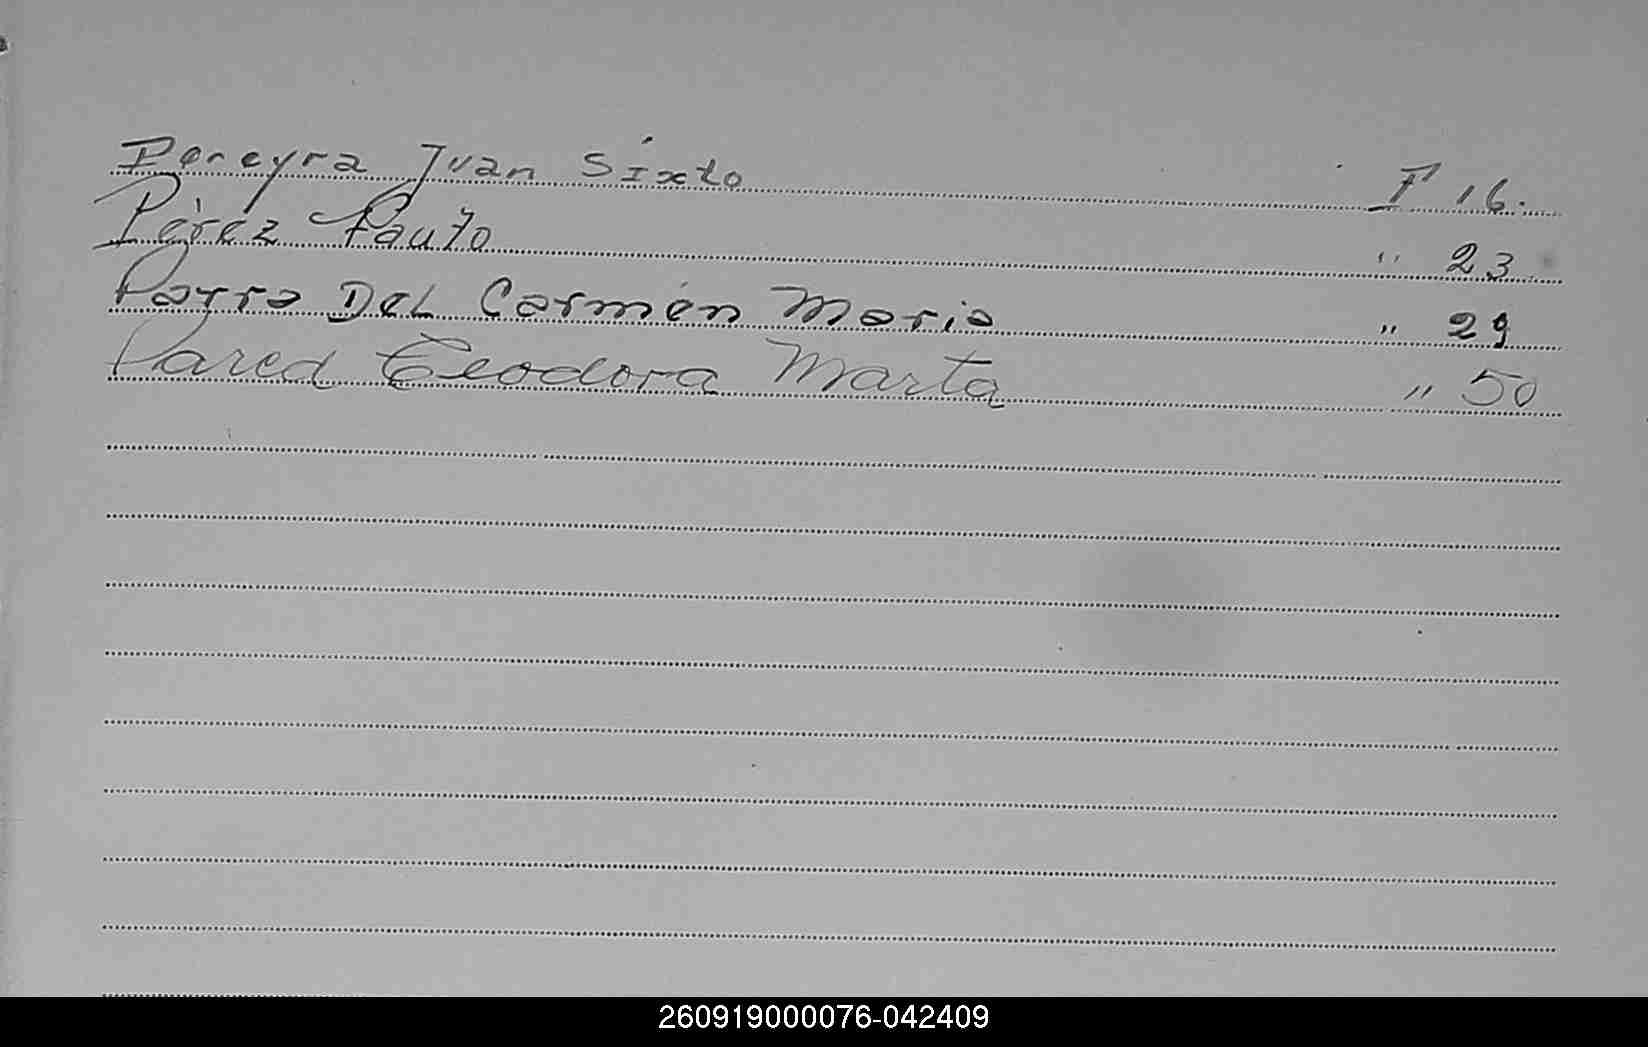 Pereyra Juan Sixto F 16.
Pérez Fauto " 23
Parra Del Carmen Maria " 29
Pared Teodora Marta " 50
260919000076-042409